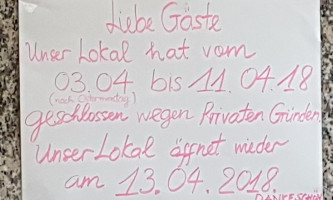 Liebe Gäste
Unser Lokal hat vom
03.04 bis 11.04.18
(nach Ostermontag)
geschlossen wegen Privaten Gründen
Unser Lokal öffnet wieder
am 13.04.2018.
DANKESCHÖN